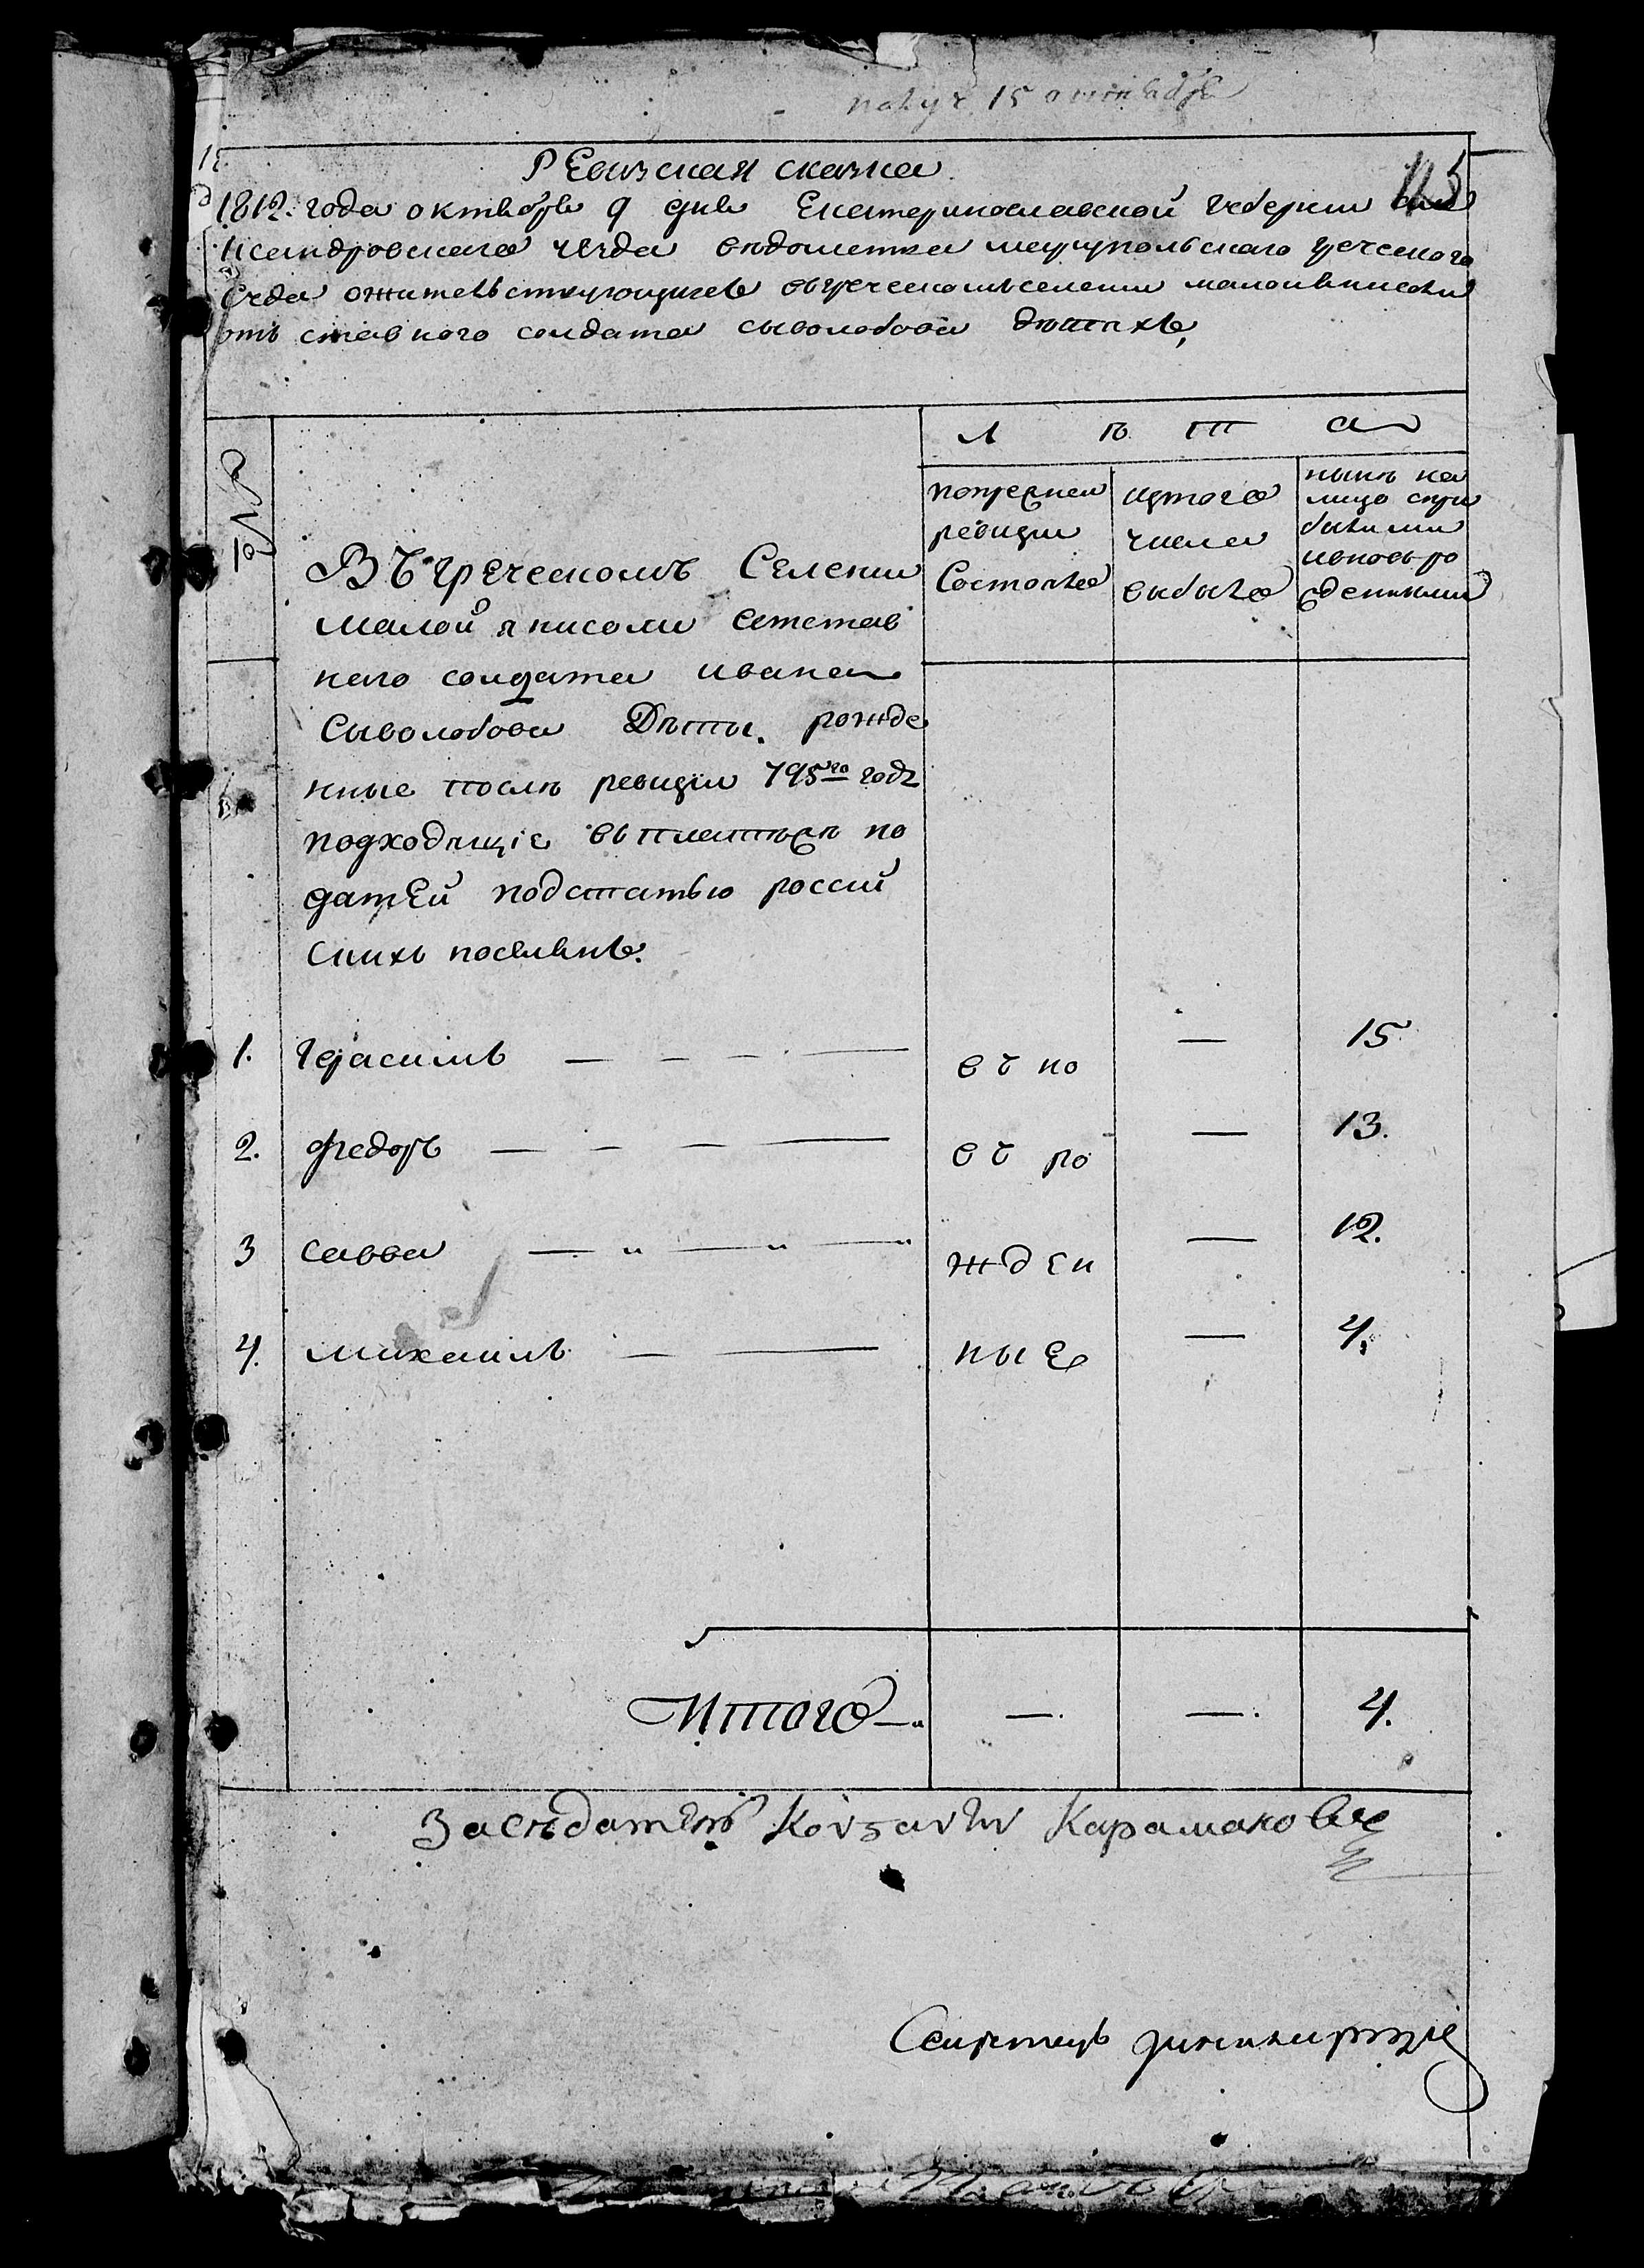 получ. 15 октября
115
Ревизская сказка
1812: года октября 9 дня Екатеринославской губернии але
ксандровского уезда ведомства мариупольского греческого
суда ожительствующихъ вгреческомъселении малоиянисоли
отъ ставного солдата сыволобова дѣтяхъ,
Л Ѣ Т А
№
попоследнеи ревизии Состояло
изтого числа выбыло
нынѣ на лицо спри былыми ивновьро жденными
ВЪ греческомъ Селении
малой янисоли отстав
наго солдата ивана
Сыволобова Дѣты. рожде
нные послѣ ревизіи 795го годa
подходящіе въплатежъ по
датей подстатью россий
скихъ поселянъ.
1. Герасимъ — — — — въ но — 15
2. Федоръ — — — — въ ро — 13.
3 савва — „ — „ — „ жден — 12.
4. михаилъ — — ные — 4.
Итого — — — 4.
Заседатель Карамановъ
Секретарь